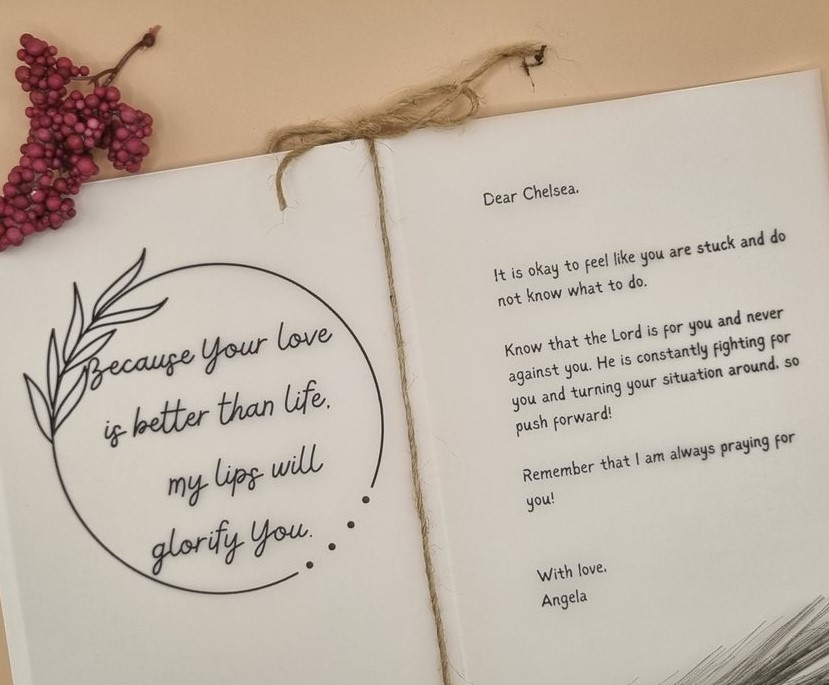 Because Your love
is better than life,
my lips will
glorify You.
Dear Chelsea,
It is okay to feel like you are stuck and do
not know what to do.
Know that the Lord is for you and never
against you. He is constantly fighting for
you and turning your situation around, so
push forward!
Remember that I am always praying for
you!
With love,
Angela